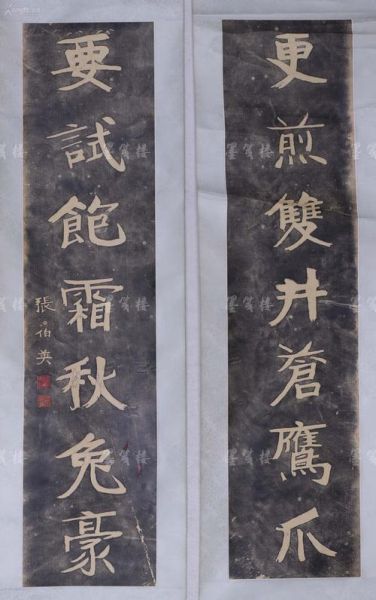 更煎雙井蒼鷹爪
要試飽霜秋兔豪
張伯英
墨箋樓